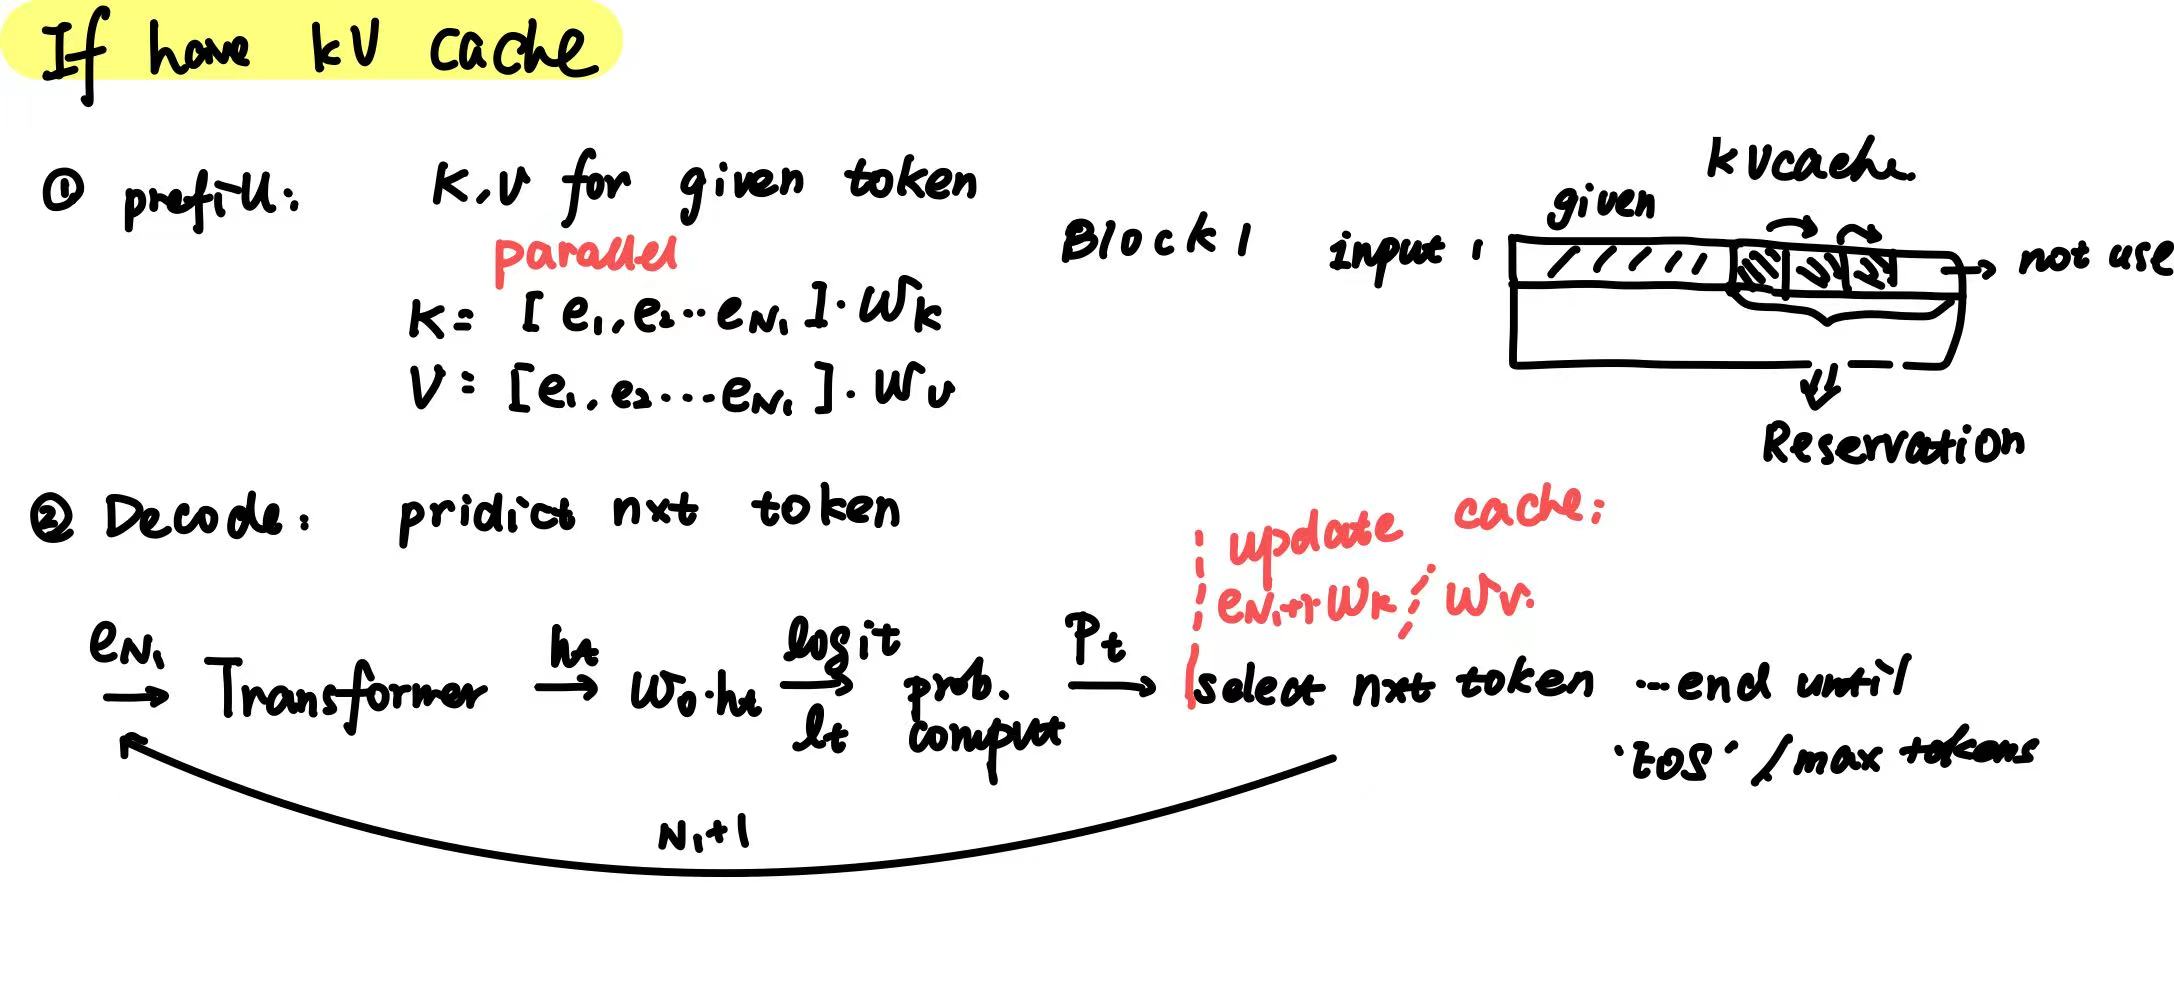 If have kV cache
① prefill: K,V for given token
parallel
K = [ e1, e2 ·· eN1 ] · Wk
V = [ e1, e2 ... eN1 ] · Wv
kVcache.
given
Block 1 input 1 not use
Reservation
② Decode: pridict nxt token
update cache:
eN1+1 Wk / Wv.
eN1 → Transformer ht → Wo·ht logit → lt prob. comput Pt → select nxt token ... end until
'EOS' / max tokens
N1+1